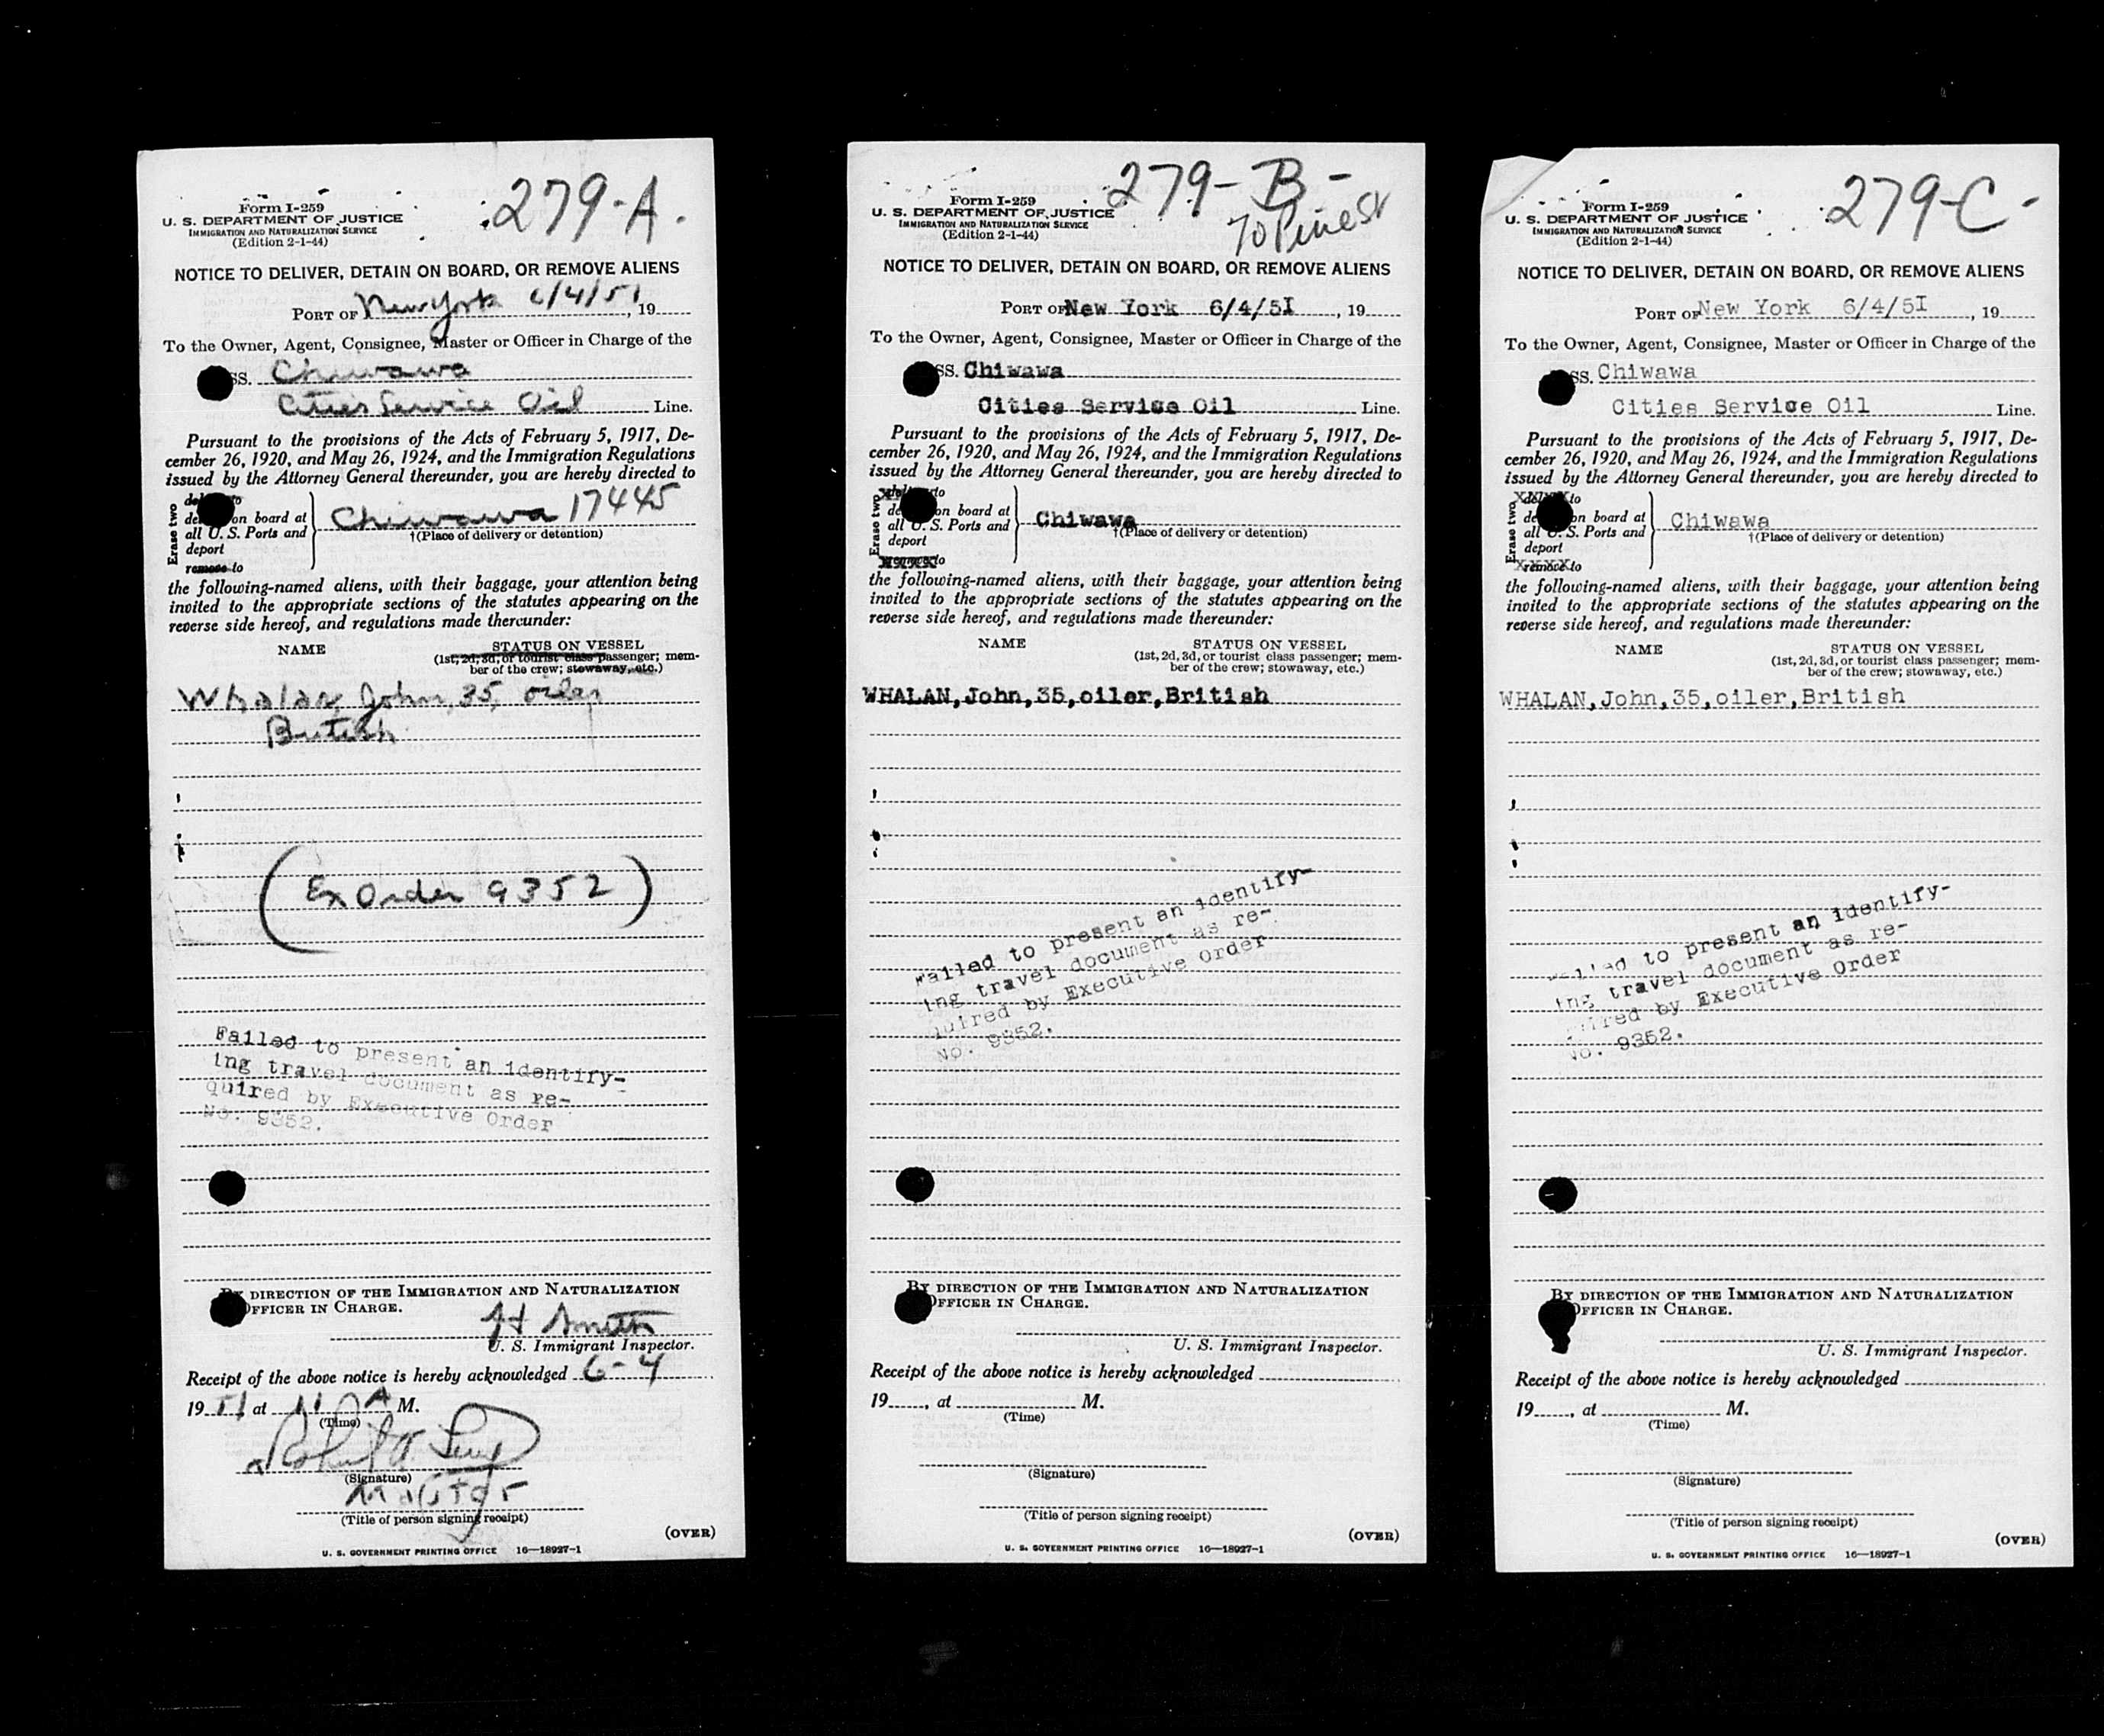 279-A.
Form I-259
U. S. DEPARTMENT OF JUSTICE
IMMIGRATION AND NATURALIZATION SERVICE
(Edition 2-1-44)
NOTICE TO DELIVER, DETAIN ON BOARD, OR REMOVE ALIENS
PORT OF New York 6/4/51, 19
To the Owner, Agent, Consignee, Master or Officer in Charge of the
SS. Chiwawa
Cities Service Oil Line.
Pursuant to the provisions of the Acts of February 5, 1917, De-
cember 26, 1920, and May 26, 1924, and the Immigration Regulations
issued by the Attorney General thereunder, you are hereby directed to
Erase two
to
on board at
all U. S. Ports and
deport
remove to
Chiwawa 17445
†(Place of delivery or detention)
the following-named aliens, with their baggage, your attention being
invited to the appropriate sections of the statutes appearing on the
reverse side hereof, and regulations made thereunder:
NAME STATUS ON VESSEL
(1st, 2d, 3d, or tourist class passenger; mem-
ber of the crew; stowaway, etc.)
Whalan, John, 35, oiler
British
(Ex Order 9352)
Failed to present an identify-
ing travel document as re-
quired by Executive Order
No. 9352.
BY DIRECTION OF THE IMMIGRATION AND NATURALIZATION
OFFICER IN CHARGE.
Smith
U. S. Immigrant Inspector.
Receipt of the above notice is hereby acknowledged 6-4
19 51 at 11 A M.
(Time)
(Signature)
(Title of person signing receipt)
(OVER)
U. S. GOVERNMENT PRINTING OFFICE 16—18927-1
279-B-
70 Pine St
Form I-259
U. S. DEPARTMENT OF JUSTICE
IMMIGRATION AND NATURALIZATION SERVICE
(Edition 2-1-44)
NOTICE TO DELIVER, DETAIN ON BOARD, OR REMOVE ALIENS
PORT OF New York 6/4/5I, 19
To the Owner, Agent, Consignee, Master or Officer in Charge of the
SS. Chiwawa
Cities Service Oil Line.
Pursuant to the provisions of the Acts of February 5, 1917, De-
cember 26, 1920, and May 26, 1924, and the Immigration Regulations
issued by the Attorney General thereunder, you are hereby directed to
Erase two
to
on board at
all U. S. Ports and
deport
remove to
Chiwawa
†(Place of delivery or detention)
the following-named aliens, with their baggage, your attention being
invited to the appropriate sections of the statutes appearing on the
reverse side hereof, and regulations made thereunder:
NAME STATUS ON VESSEL
(1st, 2d, 3d, or tourist class passenger; mem-
ber of the crew; stowaway, etc.)
WHALAN,John,35,oiler,British
Failed to present an identify-
ing travel document as re-
quired by Executive Order
No. 9352.
BY DIRECTION OF THE IMMIGRATION AND NATURALIZATION
OFFICER IN CHARGE.
U. S. Immigrant Inspector.
Receipt of the above notice is hereby acknowledged
19, at M.
(Time)
(Signature)
(Title of person signing receipt)
(OVER)
U. S. GOVERNMENT PRINTING OFFICE 16—18927-1
279-C-
Form I-259
U. S. DEPARTMENT OF JUSTICE
IMMIGRATION AND NATURALIZATION SERVICE
(Edition 2-1-44)
NOTICE TO DELIVER, DETAIN ON BOARD, OR REMOVE ALIENS
PORT OF New York 6/4/5I, 19
To the Owner, Agent, Consignee, Master or Officer in Charge of the
SS. Chiwawa
Cities Service Oil Line.
Pursuant to the provisions of the Acts of February 5, 1917, De-
cember 26, 1920, and May 26, 1924, and the Immigration Regulations
issued by the Attorney General thereunder, you are hereby directed to
Erase two
to
on board at
all U. S. Ports and
deport
remove to
Chiwawa
†(Place of delivery or detention)
the following-named aliens, with their baggage, your attention being
invited to the appropriate sections of the statutes appearing on the
reverse side hereof, and regulations made thereunder:
NAME STATUS ON VESSEL
(1st, 2d, 3d, or tourist class passenger; mem-
ber of the crew; stowaway, etc.)
WHALAN,John,35,oiler,British
Failed to present an identify-
ing travel document as re-
quired by Executive Order
No. 9352.
BY DIRECTION OF THE IMMIGRATION AND NATURALIZATION
OFFICER IN CHARGE.
U. S. Immigrant Inspector.
Receipt of the above notice is hereby acknowledged
19, at M.
(Time)
(Signature)
(Title of person signing receipt)
(OVER)
U. S. GOVERNMENT PRINTING OFFICE 16—18927-1